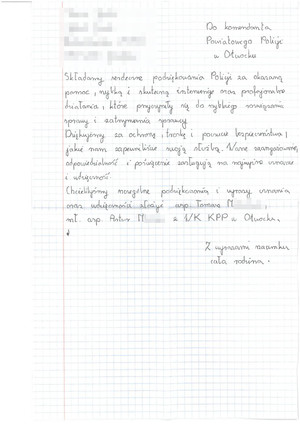 Do komendanta
Powiatowego Policji
w Otwocku
Składamy serdeczne podziękowania Policji za okazaną
pomoc, szybką i skuteczną interwencję oraz profesjonalne
działania, które przyczyniły się do szybkiego rozwiązania
sprawy i zatrzymania sprawcy.
Dziękujemy za ochronę, troskę i poczucie bezpieczeństwa,
jakie nam zapewniliście swoją służbą. Wasze zaangażowanie,
odpowiedzialność i poświęcenie zasługują na najwyższe uznanie
i wdzięczność.
Chcielibyśmy szczególne podziękowania i wyrazy uznania
oraz wdzięczności złożyć asp. Tomasz M
mł. asp. Artur M z W/K KPP w Otwocku.
Z wyrazami szacunku
cała rodzina.